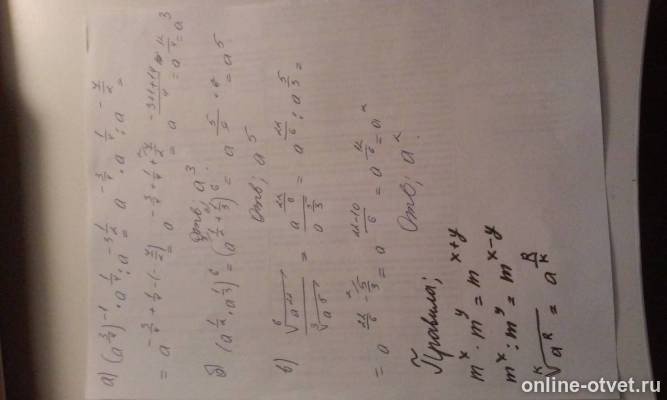 а) (a^{3/4})^{-1} · a^{1/4} : a^{-3 1/2} = a^{-3/4} · a^{1/4} : a^{-7/2} =
= a^{-3/4 + 1/4 - (-7/2)} = a^{-3/4 + 1/4 + 7/2} = a^{(-3+1+14)/4} = a^{12/4} = a^3
Отв; a^3
б) (a^{1/2} · a^{1/3})^6 = (a^{1/2 + 1/3})^6 = a^{5/6 · 6} = a^5.
Отв; a^5
в) \sqrt[6]{a^{22}} / \sqrt[3]{a^5} = a^{22/6} / a^{5/3} = a^{22/6} : a^{5/3} =
= a^{22/6 - 5/3} = a^{(22-10)/6} = a^{12/6} = a^2
Отв; a^2.
Правила;
m^x · m^y = m^{x+y}
m^x : m^y = m^{x-y}
online-otvet.ru